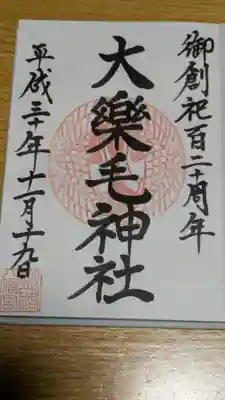 御創祀百二十周年
大樂毛神社
平成三十年十一月十九日